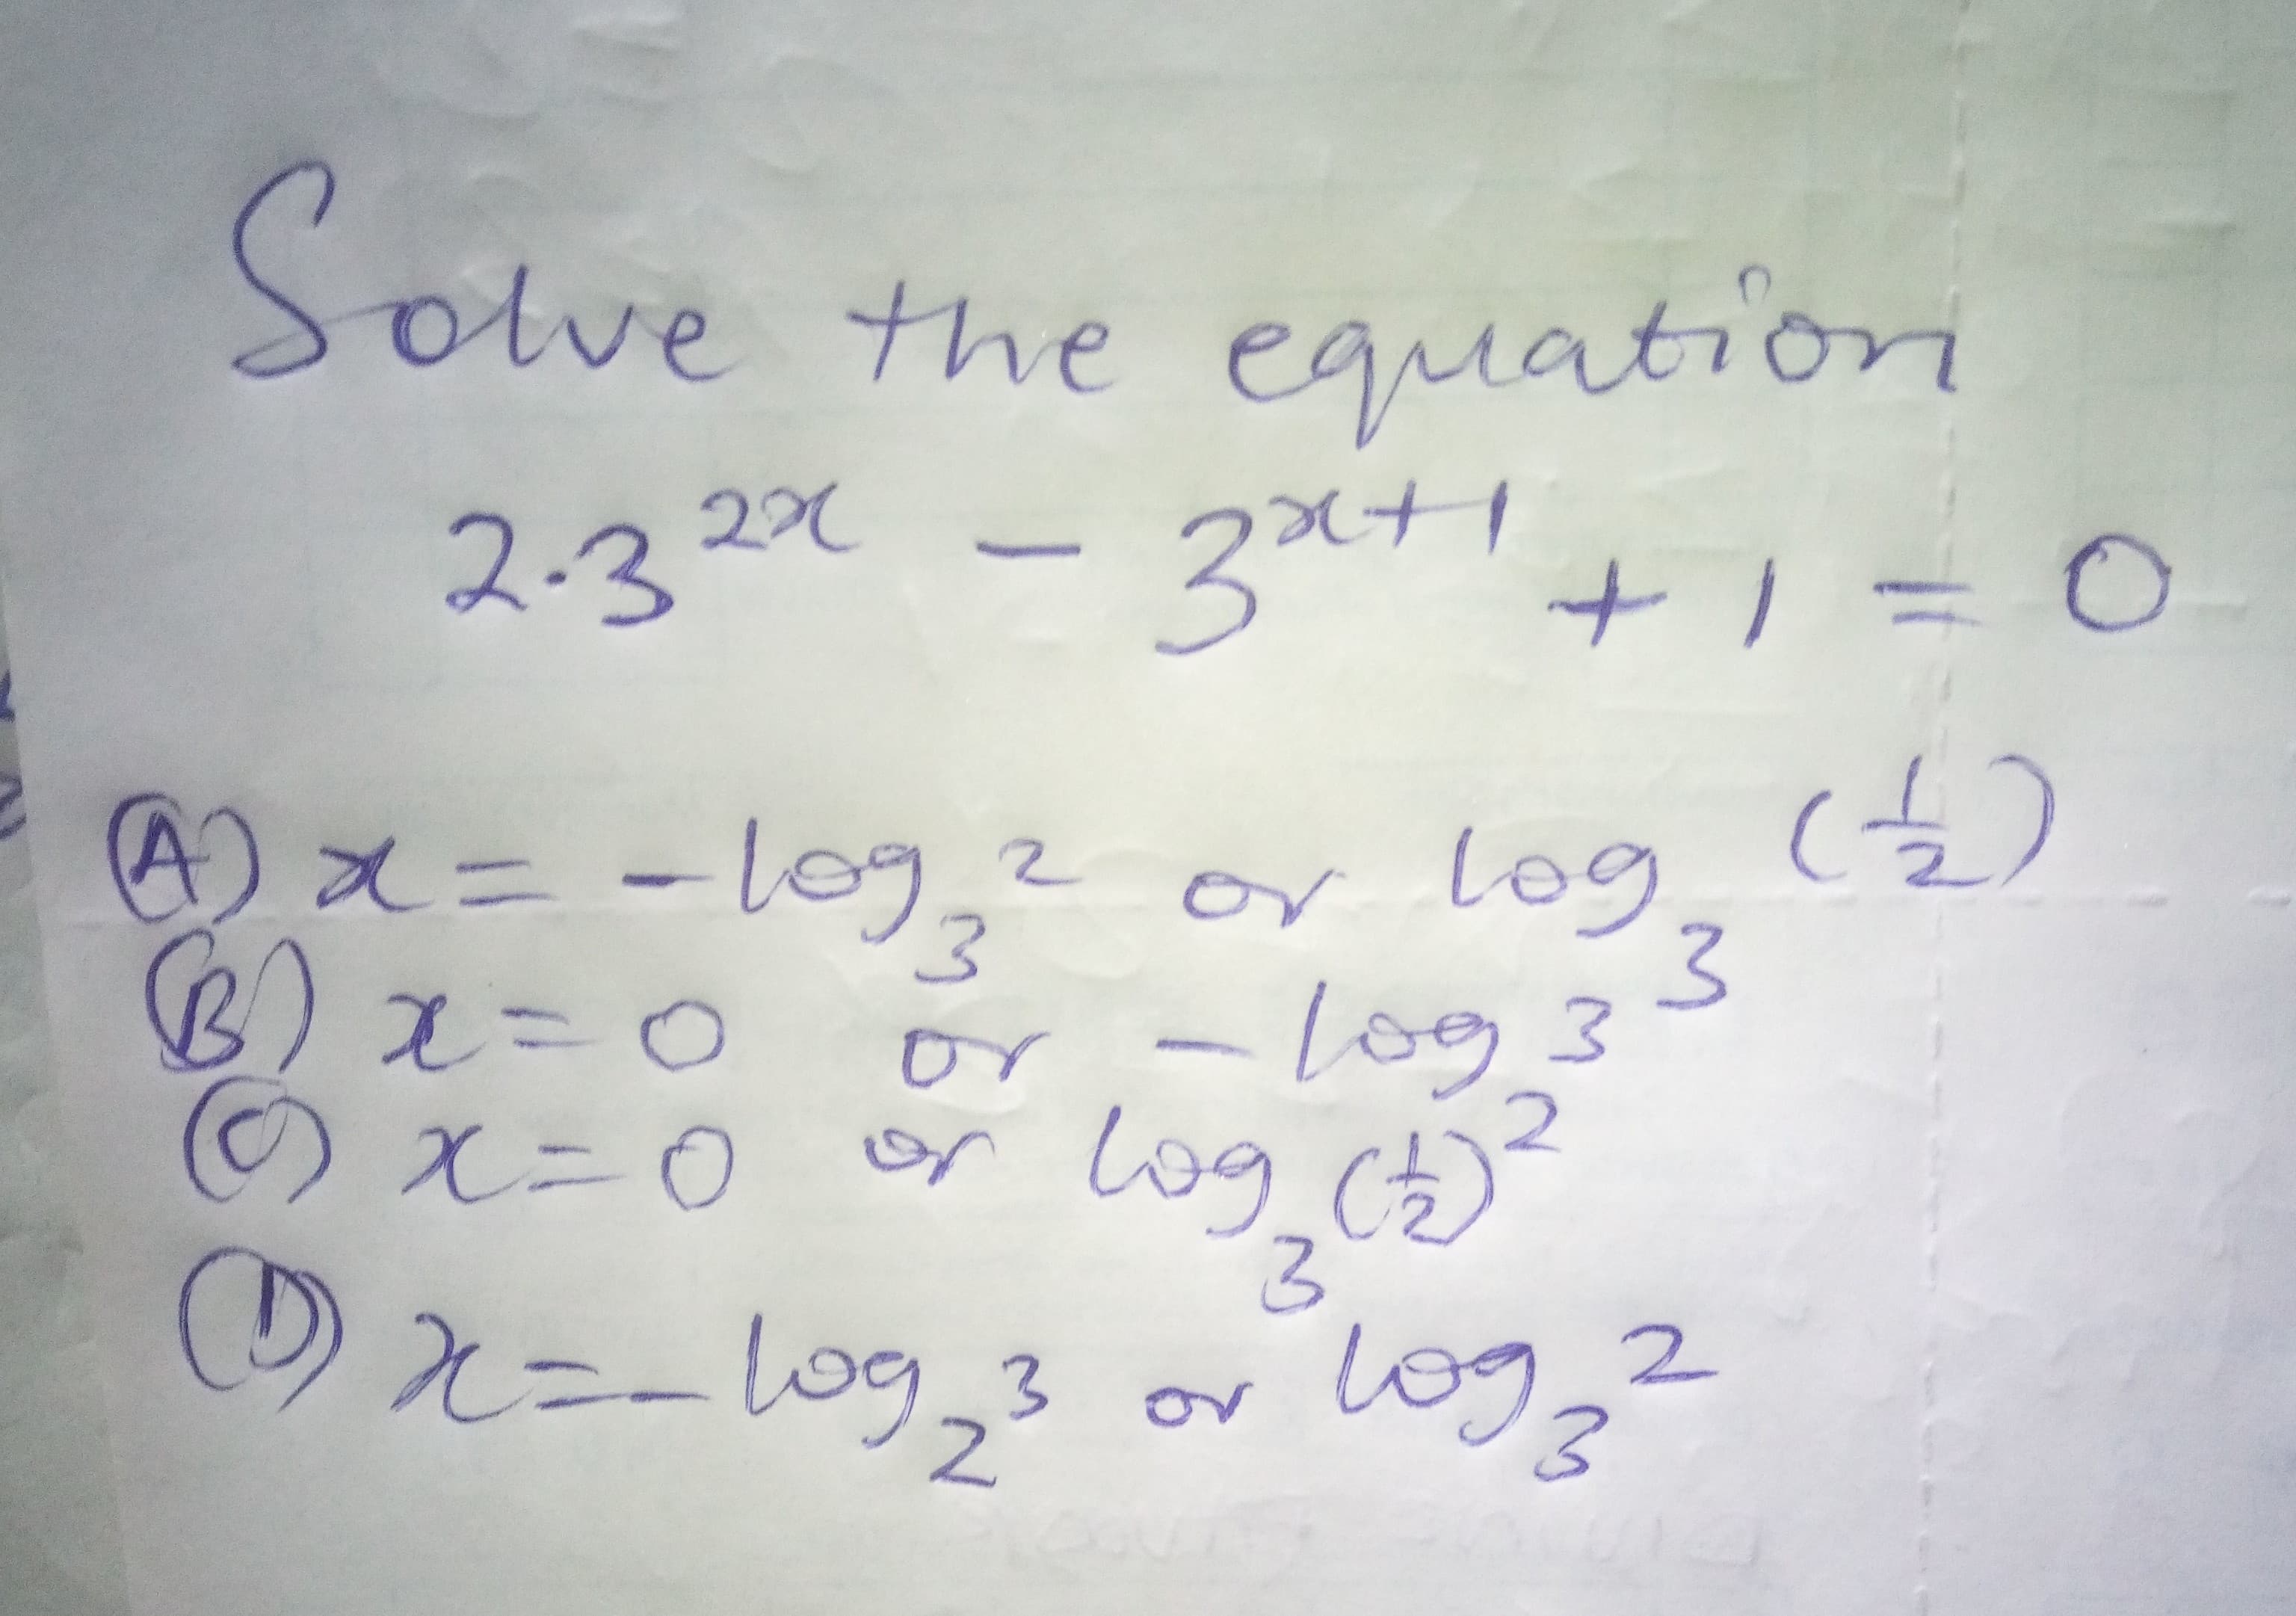 Solve the equation
2·3^{2x} - 3^{x+1} + 1 = 0
(A) x = -log₃2 or log₃(1/2)
(B) x = 0 or -log 3
(C) x = 0 or log₃(1/2)²
(D) x = -log₂3 or log₃2